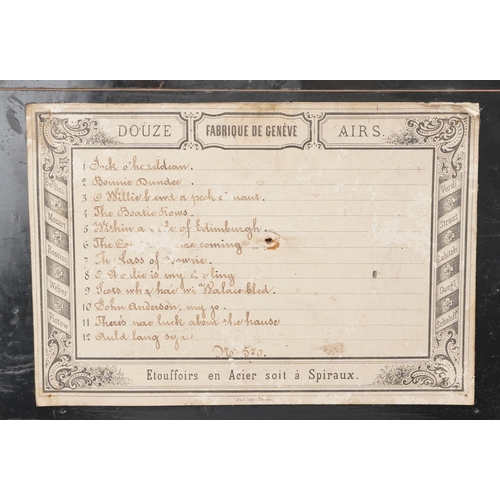 DOUZE FABRIQUE DE GENÈVE AIRS.
1 Jock o'hazeldean.
2 Bonnie Dundee.
3 O Willie b ew'd a peck o' maut.
4 The Boatie Rows.
5 Within a of Edinburgh.
6 The are coming
7 The Lass of wrie.
8 O die is my ling
9 Scots wha hae wi Walace bled.
10 John Anderson, my jo.
11 There's nae luck about the hause
12 Auld lang syne
No 570.
Mozart
Rossini
Weber
Flotow
Verdi
Strauss
Gungl
Etouffoirs en Acier soit à Spiraux.